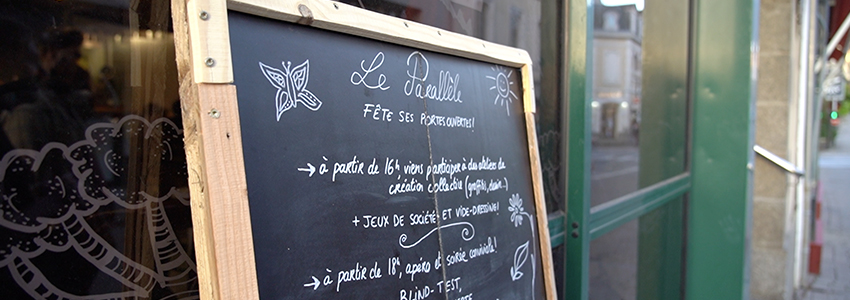 Le Parallèle
FÊTE SES PORTES OUVERTES!
→ à partir de 16h viens participer à des ateliers de
création collective (graffiti, dessin...)
+ JEUX DE SOCIÉTÉ ET VIDE-DRESSING!
→ à partir de 18h, apéro et soirée conviviale!
BLIND-TEST,